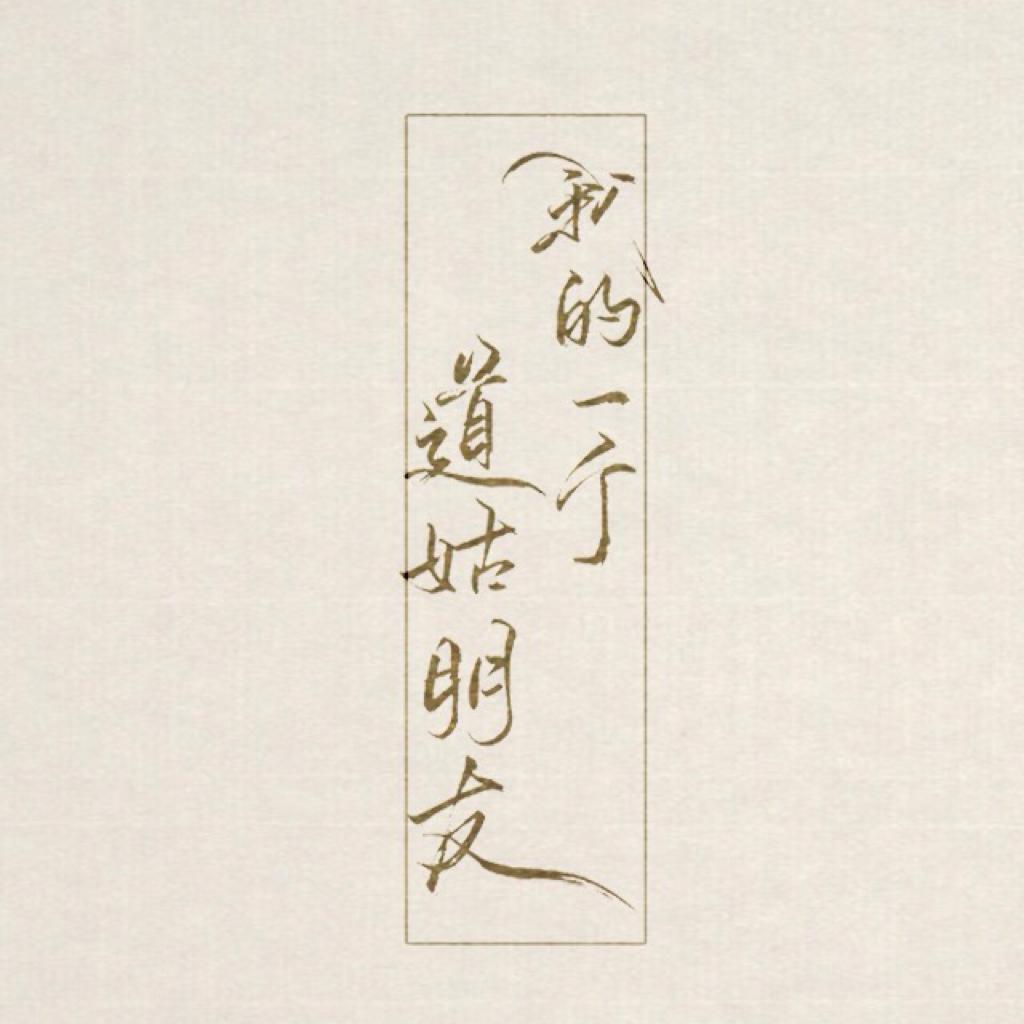 我的一个
道姑朋友